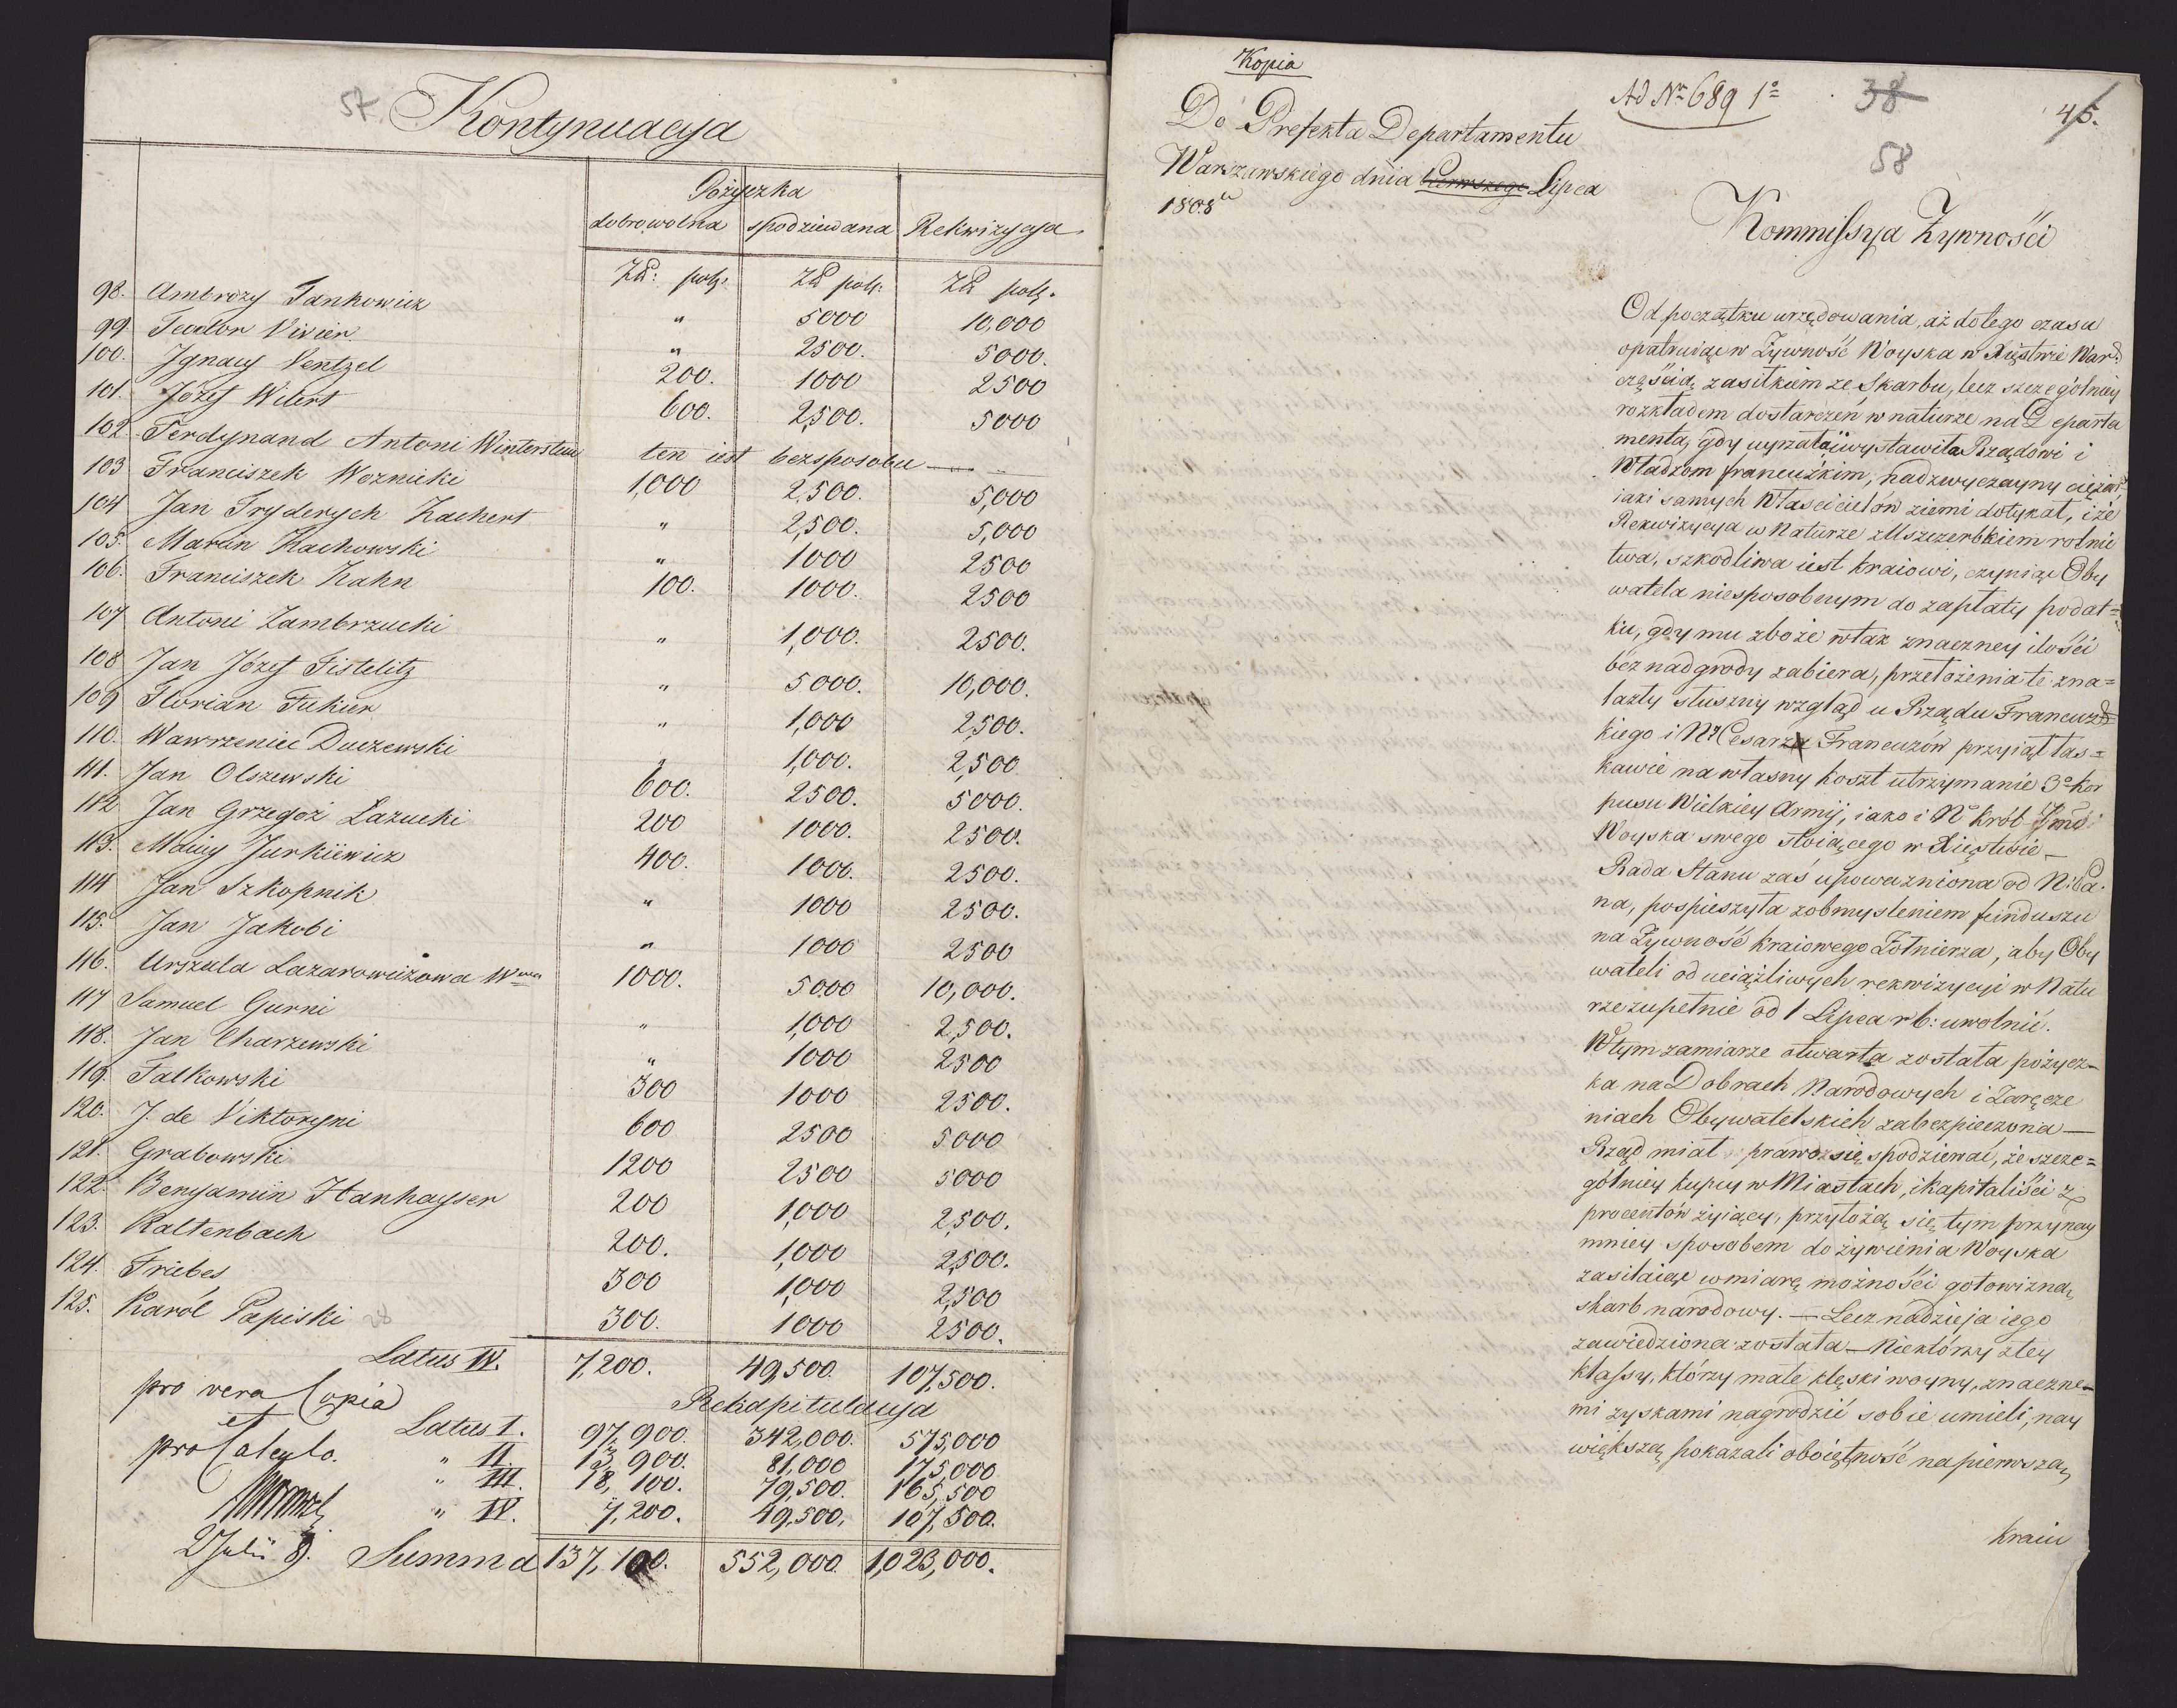 57.
Kontynuacya
Pożyczka
dobrowolna spodziewana Rekwizycya
Zł: pols: Zł pols: Zł pols.
98. Ambroży Jankowicz " 5000 10,000
99 Teodor Vivier " 2500. 5000.
100. Jgnacy Ventzel 200. 1000 2500
101. Józef Witert 600. 2,500. 5000
102. Ferdynand Antoni Winterstein ten iest bezsposobu
103 Franciszek Woznicki 1,000 2,500. 5,000
104 Jan Fryderych Zachert " 2,500. 5,000
105. Marcin Zachowski " 1000 2500
106. Franciszek Zahn 100. 1000. 2500
107 Antoni Zambrzucki " 1,000. 2500.
108 Jan Józef Fistelitz " 5000. 10,000.
109 Florian Fukier " 1,000 2,500.
110. Wawrzeniec Duczewski " 1,000. 2,500
111. Jan Olszewski 600. 2500. 5000.
112 Jan Grzegoż Łazucki 200 1000. 2500.
113. Maciey Jurkiewicz 400. 1000. 2500.
114 Jan Szkopnik " 1000 2500.
115. Jan Jakobi " 1000 2500
116. Urszula Lazarowiczowa Wwa 1000. 5000 10,000.
117 Samuel Gurni " 1,000 2,500.
118. Jan Charzewski " 1000 2500
119. Falkowski 300 1000 2500.
120. J. de Viktoryni 600 2500 5000
121. Grabowski 1200 2500 5000
122. Benjamin Hanhayser 200 1,000 2,500.
123. Kaltenbach 200. 1,000 2,500.
124. Friebes 300 1,000 2,500
125. Karól Papiski 300. 1000 2500.
Latus IV. 7,200. 49,500. 107,500.
pro vera Copia Rekapitulacya
et Latus I. 97,900. 342,000. 575,000
pro Calculo. " II. 13,900. 81,000 175,000
" III. 18,100. 79,500. 165,500
" IV. 7,200. 49,500. 107,500.
2 Julii 8. Summa 137,100. 552,000. 1,023,000.
Kopia
Ad Nr 689 1o
38
45.
58
Do Prefekta Departamentu
Warszawskiego dnia Pierwszego Lipca
1808
Kommissya Żywności
Od początku urzędowania, aż do tego czasu
opatruiąc w Żywność Woyska w Xięstwie Ward
częścią zasiłkiem ze Skarbu, lecz szczegolniey
rozkładem dostarczeń w naturze na Departa
menta, gdy wystawiła Rządowi i
Władzom francuzkim, nadzwyczayny ciężar
iaki samych Właścicielów ziemi dotykał, i że
Rekwizycya w Naturze z Uszczerbkiem rolnic
twa, szkodliwa iest kraiowi, czyniąc Oby
watela niesposobnym do zapłaty podat=
ku, gdy mu zboże w tak znaczney ilości
bez nadgrody zabiera, przełożenia te zna=
lazły słuszny wzgląd u Rządu Francuz
kiego i Ny Cesarz Francuzów przyiął łas=
kawie na własny koszt utrzymanie 3o kor
pusu Wielkiey Armij, iako i No Król Jmć
Woyska swego stoiącego w Xięstwie —
Rada Stanu zaś upoważniona od N: Pa
na, pospieszyła z obmysleniem funduszu
na Żywność kraiowego Żołnierza, aby Oby
wateli od uciążliwych rekwizycyi w Natu
rze zupełnie od 1 Lipca r b: uwolnić.
W tym zamiarze otwarta została pożycz=
ka na Dobrach Narodowych i Zaręcze
niach Obywatelskich zabezpieczona —
Rząd miał prawo się spodziewać, że szcze=
gólniey kupcy w Miastach, i kapitaliści z
procentów żyiący, przyłożą się tym przynay
mniey sposobem do żywienia Woyska
zasilaiąc w miarę możności gotowizną
skarb narodowy. — Lecz nadzieja iego
zawiedziona została — Niektórzy z tey
klassy, którzy małe klęski woyny, znaczne=
mi zyskami nagrodzić sobie umieli, nay
większą pokazali oboiętność na pierwszą
kraiu